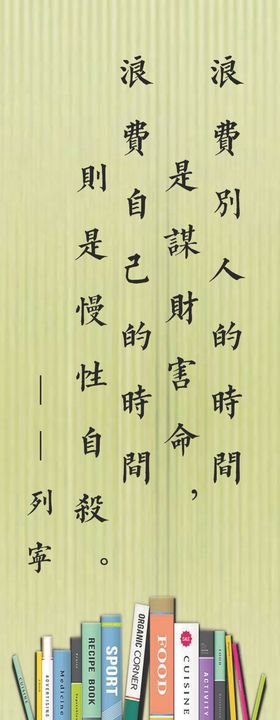 浪費別人的時間
是謀財害命，
浪費自己的時間
則是慢性自殺。
——列寧
ADVERTISING
Medicine
RECIPE BOOK
SPORT
ORGANIC CORNER
FOOD
CUISINE
ACTIVITY
FOOD